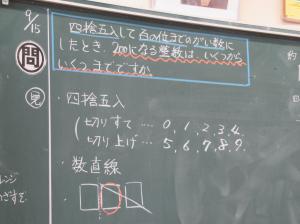 9/15
問
四捨五入して百の位までのがい数に
したとき、200になる整数は、いくつから
いくつまでですか。
見
・四捨五入
切りすて …… 0, 1, 2, 3, 4.
切り上げ …… 5, 6, 7, 8, 9.
・数直線